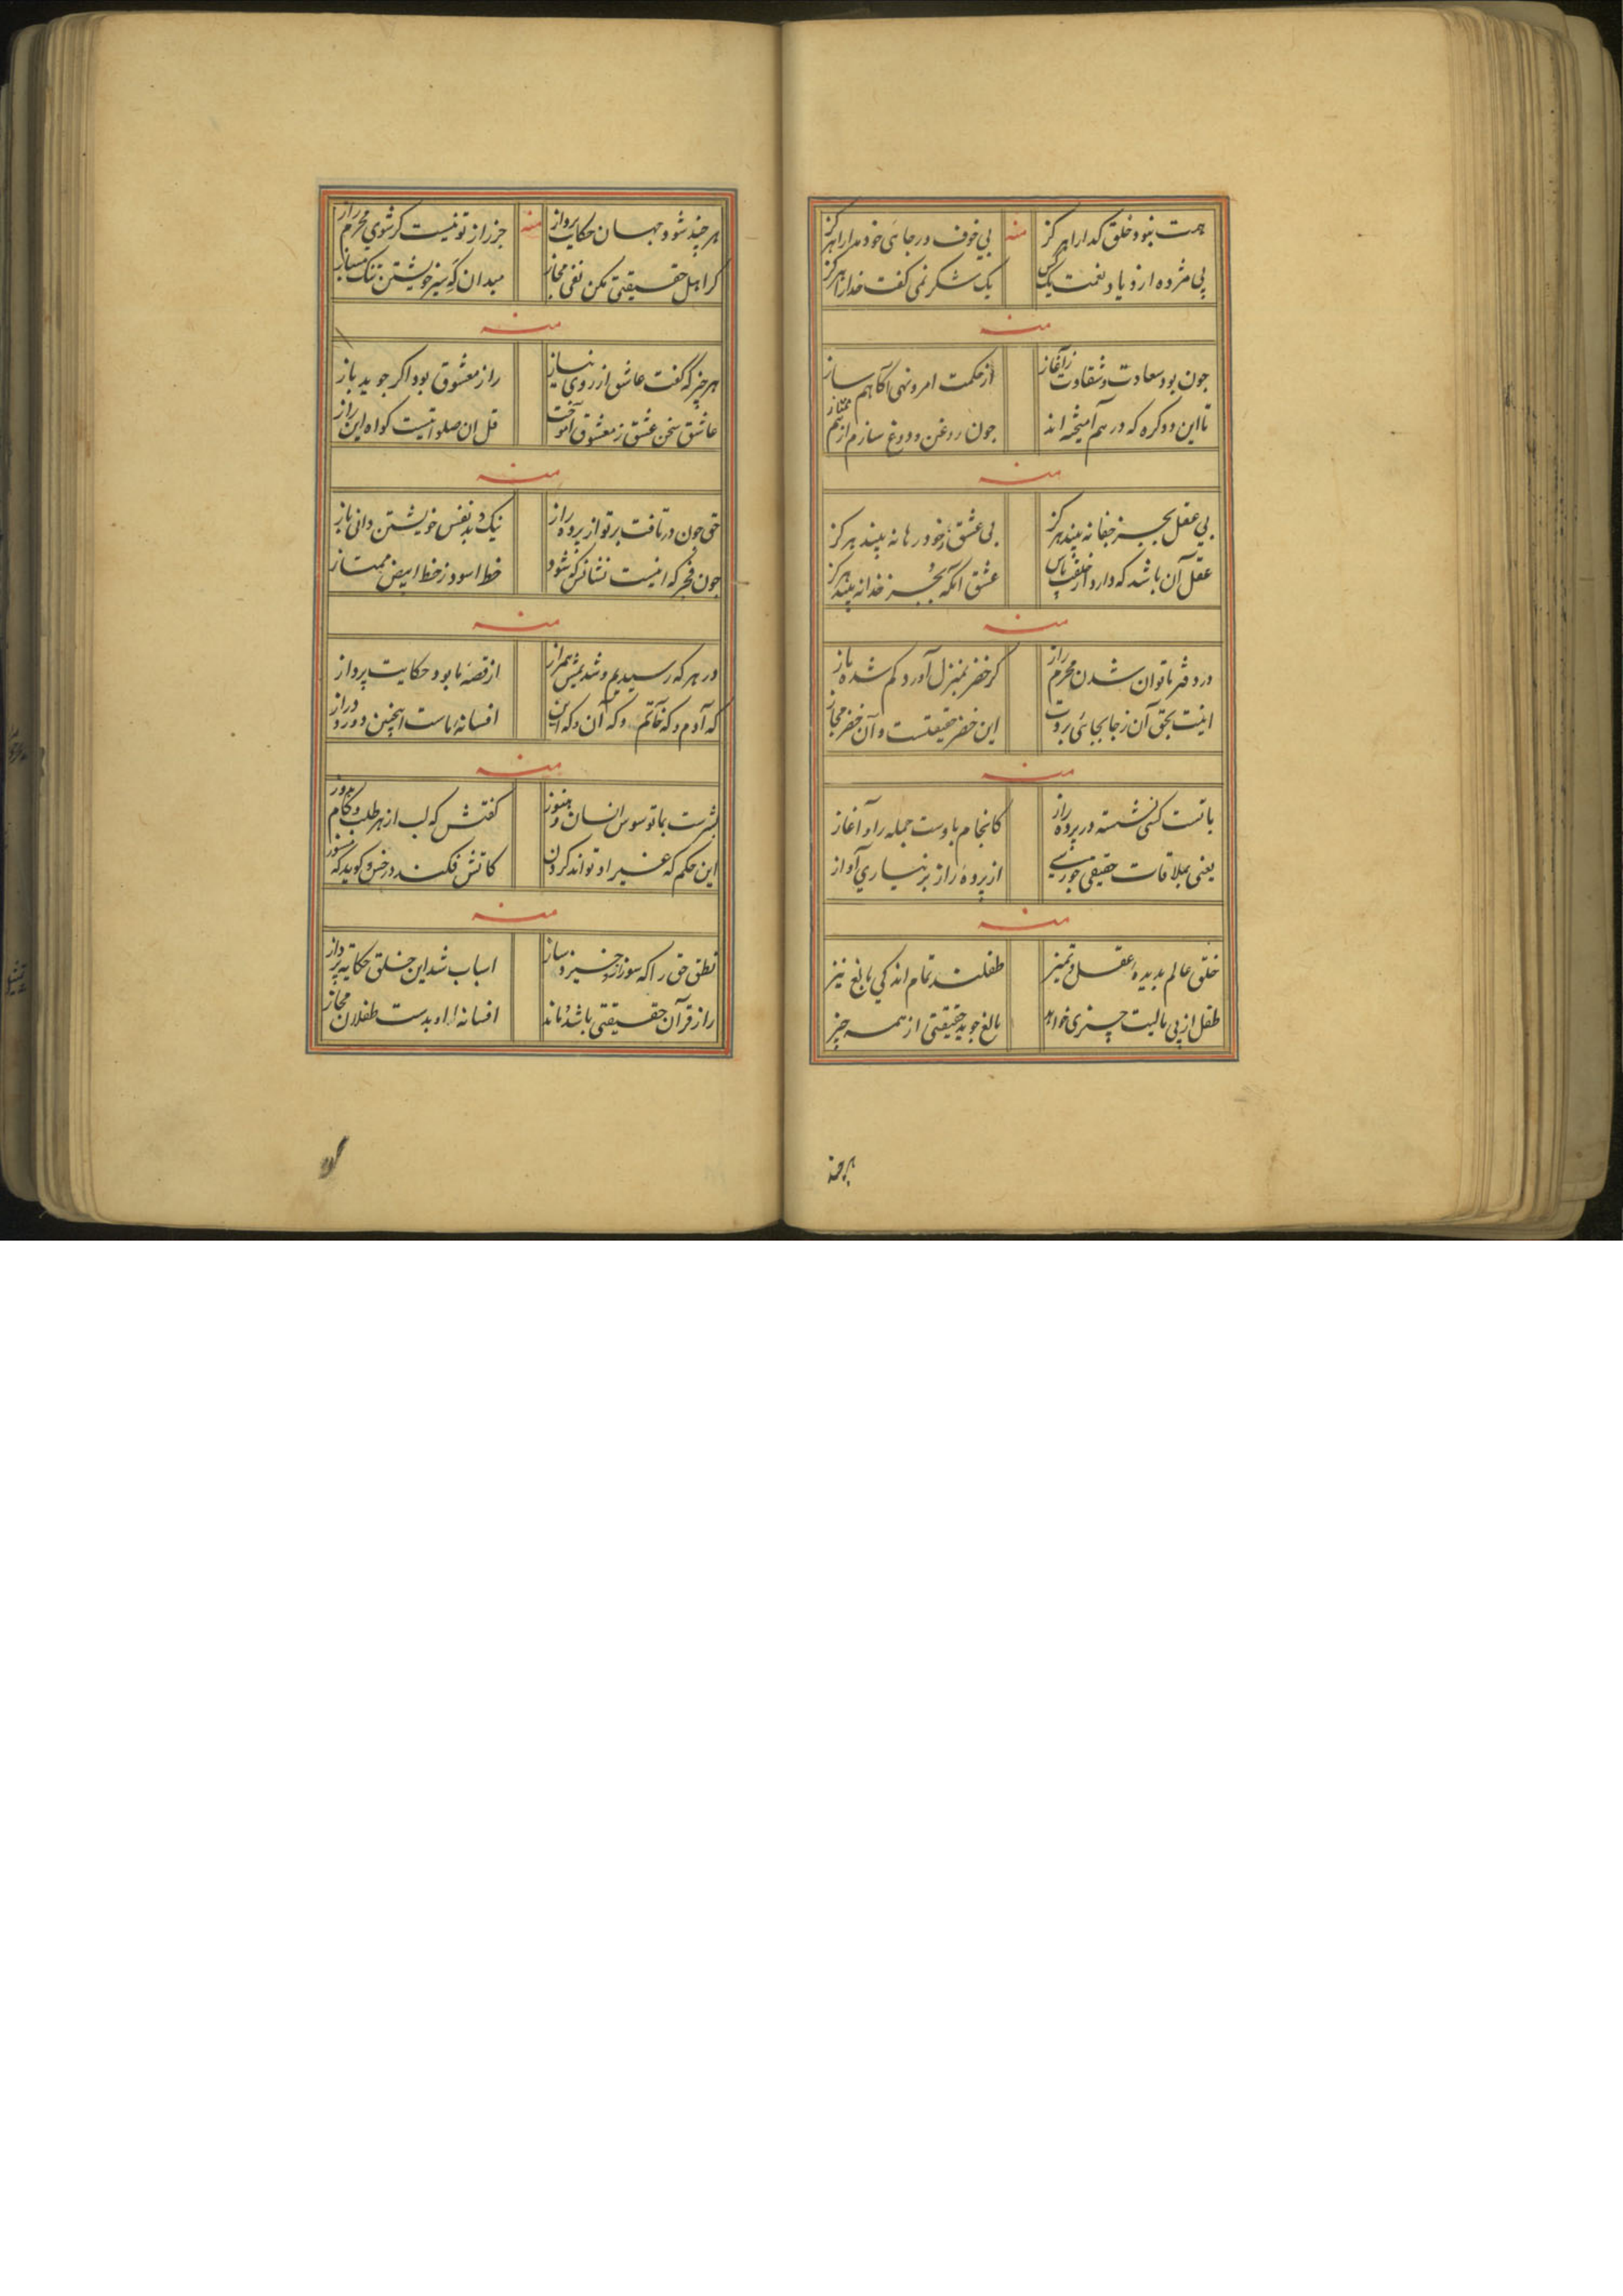 همت نبود خلق کدارا هرکز منه بی خوف و رجای خود مدارا هرکز
پی مژده ازدیاد نعمت یک کس یک شکر نمی کفت خدارا هرکز
منه
چون بود سعادت و شقاوت ز آغاز از حکمت امر و نهی آکاهم ساز
تا این دو کره که در هم آمیخته اند چون روغن و دوغ سازم از هم ممتاز
منه
بی عقل بجز جفا نه بیند هرکز بی عشق ز خود رها نه بیند هرکز
عقل آن باشد که دارد از خلقت پاس عشق آنکه بجز خدا نه بیند هرکز
منه
در دفتر ما توان شدن محرم راز کر خضر بمنزل آورد کم شده باز
اینت بحق آن ز جا بجائی بردت این خضر حقیقتست و آن خضر مجاز
منه
با تست کسی نشسته در پرده راز کانجام باوست جمله را و آغاز
یعنی بملاقات حقیقی چو رسی از پرده راز بر نیاری آواز
منه
خلق عالم بدیده عقل و تمیز طفلند تمام اندکی بالغ نیز
طفل از پی مالیت چیزی خواهد بالغ جوید حقیقتی از همه چیز
هرچند
هرچند شود جهان حکایت پرداز منه جز راز تو نیست کر شوی محرم راز
کر اهل حقیقتی مکن نفی مجاز میدان کریز خویشتن تنک مساز
منه
هر چیز که کفت عاشق از روی نیاز راز معشوق بود اکر جوید باز
عاشق سخن عشق ز معشوق آموخت قل ان صلواتیست کواه این راز
منه
حق چون در تافت بر تو از پرده راز نیک و بد نفس خویشتن دانی باز
چون فجر که اینست نشانش که شود خط اسود ز خط ابیض ممتاز
منه
در هر که رسیدیم و شدیمش همراز از قصه ما بود حکایت پرداز
که آدم و که خاتم و که آن و که این افسانه ماست اینچنین دور و دراز
منه
بشرست بما توسوس انسان و هنوز کفتش که لب از هر طلب و کام بدوز
این حکم که غیر او تواند کردن کاتش فکند در خس و کوید که مسوز
منه
نطق حق را که سوز ازو خیزد و ساز اسباب شد این خلق حکایه پرداز
راز قرآن حقیقتی باشد و ماند افسانه او بدست طفلان مجاز